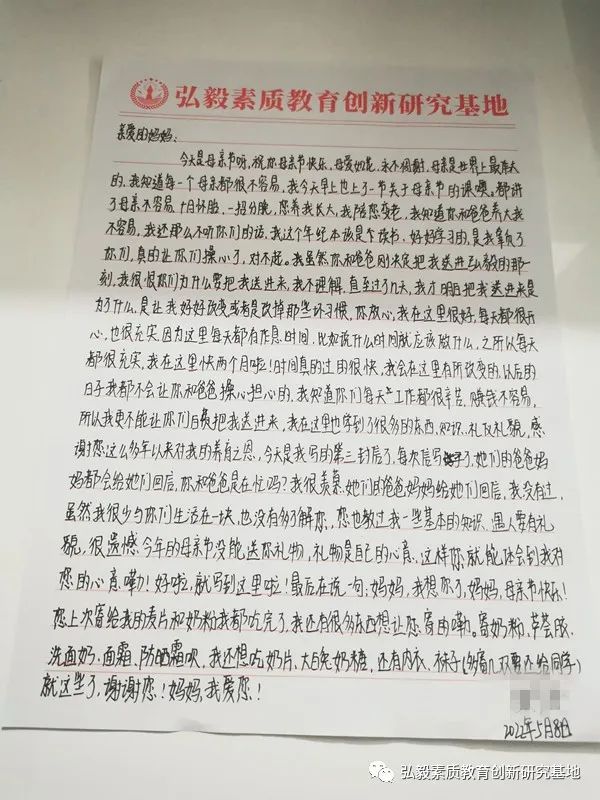 弘毅素质教育创新研究基地
亲爱的妈妈:
今天是母亲节呀,祝你母亲节快乐,母爱如花,永不凋谢,母亲是世界上最伟大
的,我知道每一个母亲都很不容易,我今天早上也上了一节关于母亲节的课噢。都讲
了母亲不容易,十月怀胎,一招分娩,您养我长大,我陪您变老,我知道你和爸爸养大我
不容易,我还那么不听你们的话,我这个年纪本该是个读书、好好学习的,是我辜负了
你们,真的让你们操心了,对不起。我虽然你和爸爸刚来把我送进弘毅的那一
刻,我很恨你们为什么要把我送进来,我不理解,直至过了几天,我才明白把我送进来是
为了什么,是让我好好改变或者是改掉那些坏习惯,你放心,我在这里很好,每天都很开
心,也很充实,因为这里每天都有作息时间,比如说什么时间就应该做什么,之所以每天
都很充实,我在这里快两个月啦!时间真的过的很快,我会在这里有所改变的,以后的
日子我都不会让你和爸爸操心担心的,我知道你们每天工作都很辛苦,赚钱不容易,
所以我更不能让你们白费把我送进来,我在这里也学到了很多的东西,知识、礼仪礼貌,感
谢您这么多年以来对我的养育之恩,今天是我写的第三封信了,每次信写了,她们的爸爸妈
妈都会给她们回信,你和爸爸是在忙吗?我很羡慕她们的爸爸妈妈给她们回信,我没有过,
虽然我很少与你们生活在一块,也没有多了解您,您也教过我一些基本的知识、遇人要有礼
貌,很遗憾今年的母亲节没能送你礼物,礼物是自己的心意,这样你就能体会到我对
您的心意嘞!好啦,就写到这里啦!最后在说一句,妈妈,我想你了,妈妈,母亲节快乐!
您上次寄给我的麦片和奶粉我都吃完了,我还有很多东西想让您寄的嘞。寄奶粉、芦荟胶、
洗面奶、面霜、防晒霜呗,我还想吃奶片、大白兔奶糖,还有内衣、袜子(多寄几双要还给同学)
就这些了,谢谢您!妈妈,我爱您!
2022年5月8日
弘毅素质教育创新研究基地